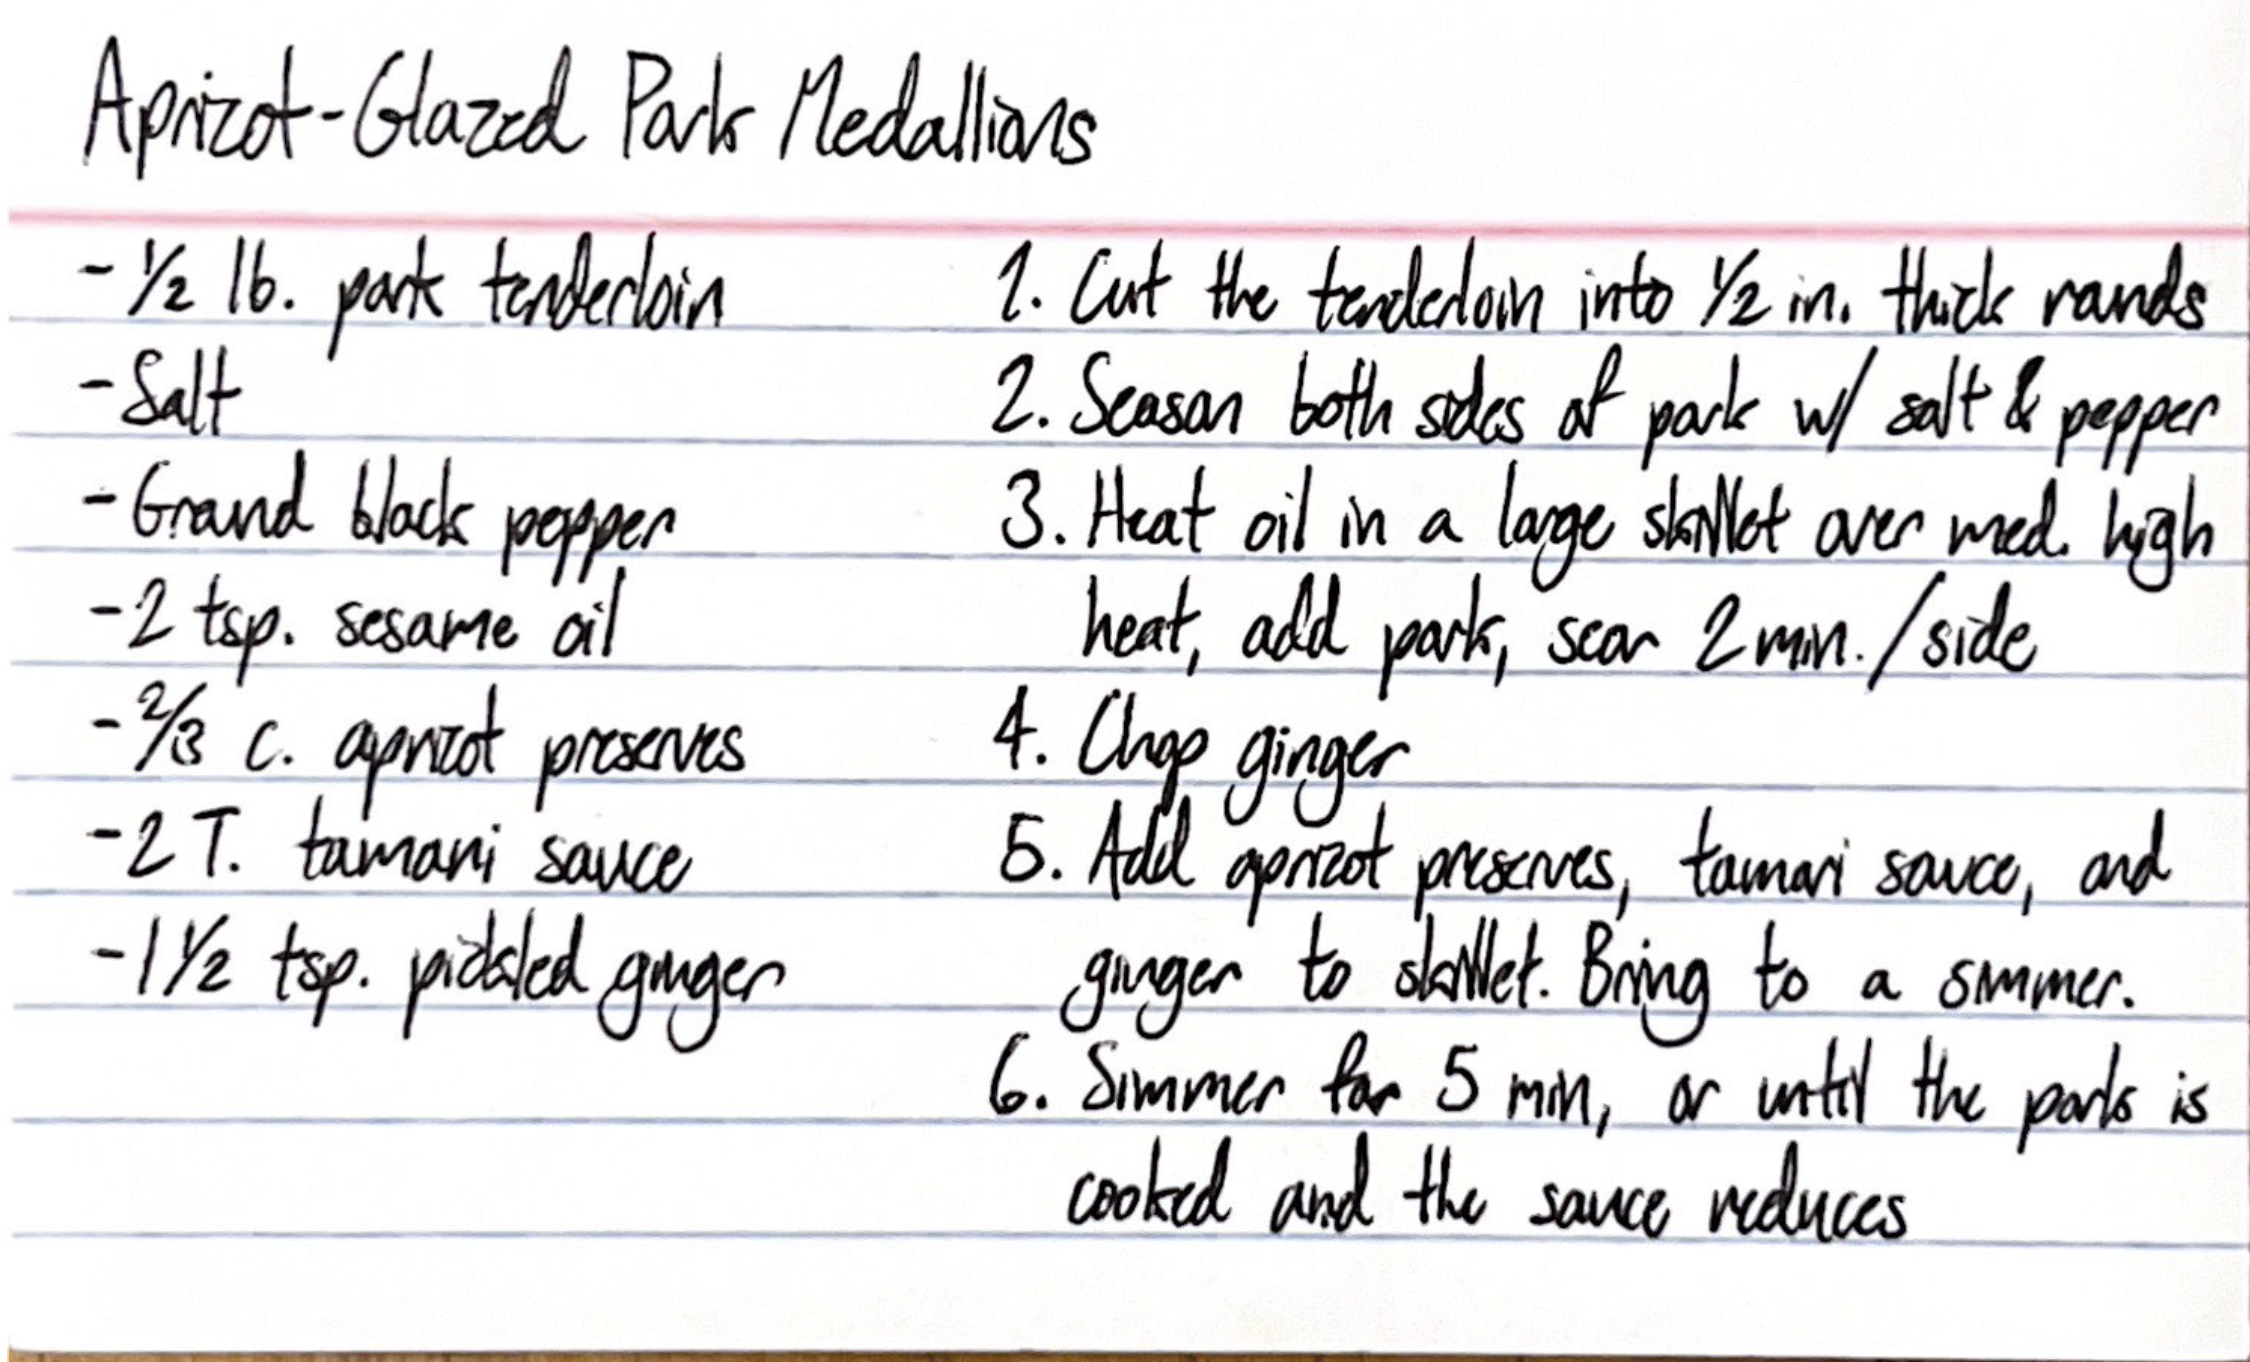 Apricot-Glazed Pork Medallions
- 1/2 lb. pork tenderloin
- Salt
- Ground black pepper
- 2 tsp. sesame oil
- 2/3 c. apricot preserves
- 2 T. tamari sauce
- 1 1/2 tsp. pickled ginger
1. Cut the tenderloin into 1/2 in. thick rounds
2. Season both sides of pork w/ salt & pepper
3. Heat oil in a large skillet over med. high
heat, add pork, sear 2 min./side
4. Chop ginger
5. Add apricot preserves, tamari sauce, and
ginger to skillet. Bring to a simmer.
6. Simmer for 5 min, or until the pork is
cooked and the sauce reduces